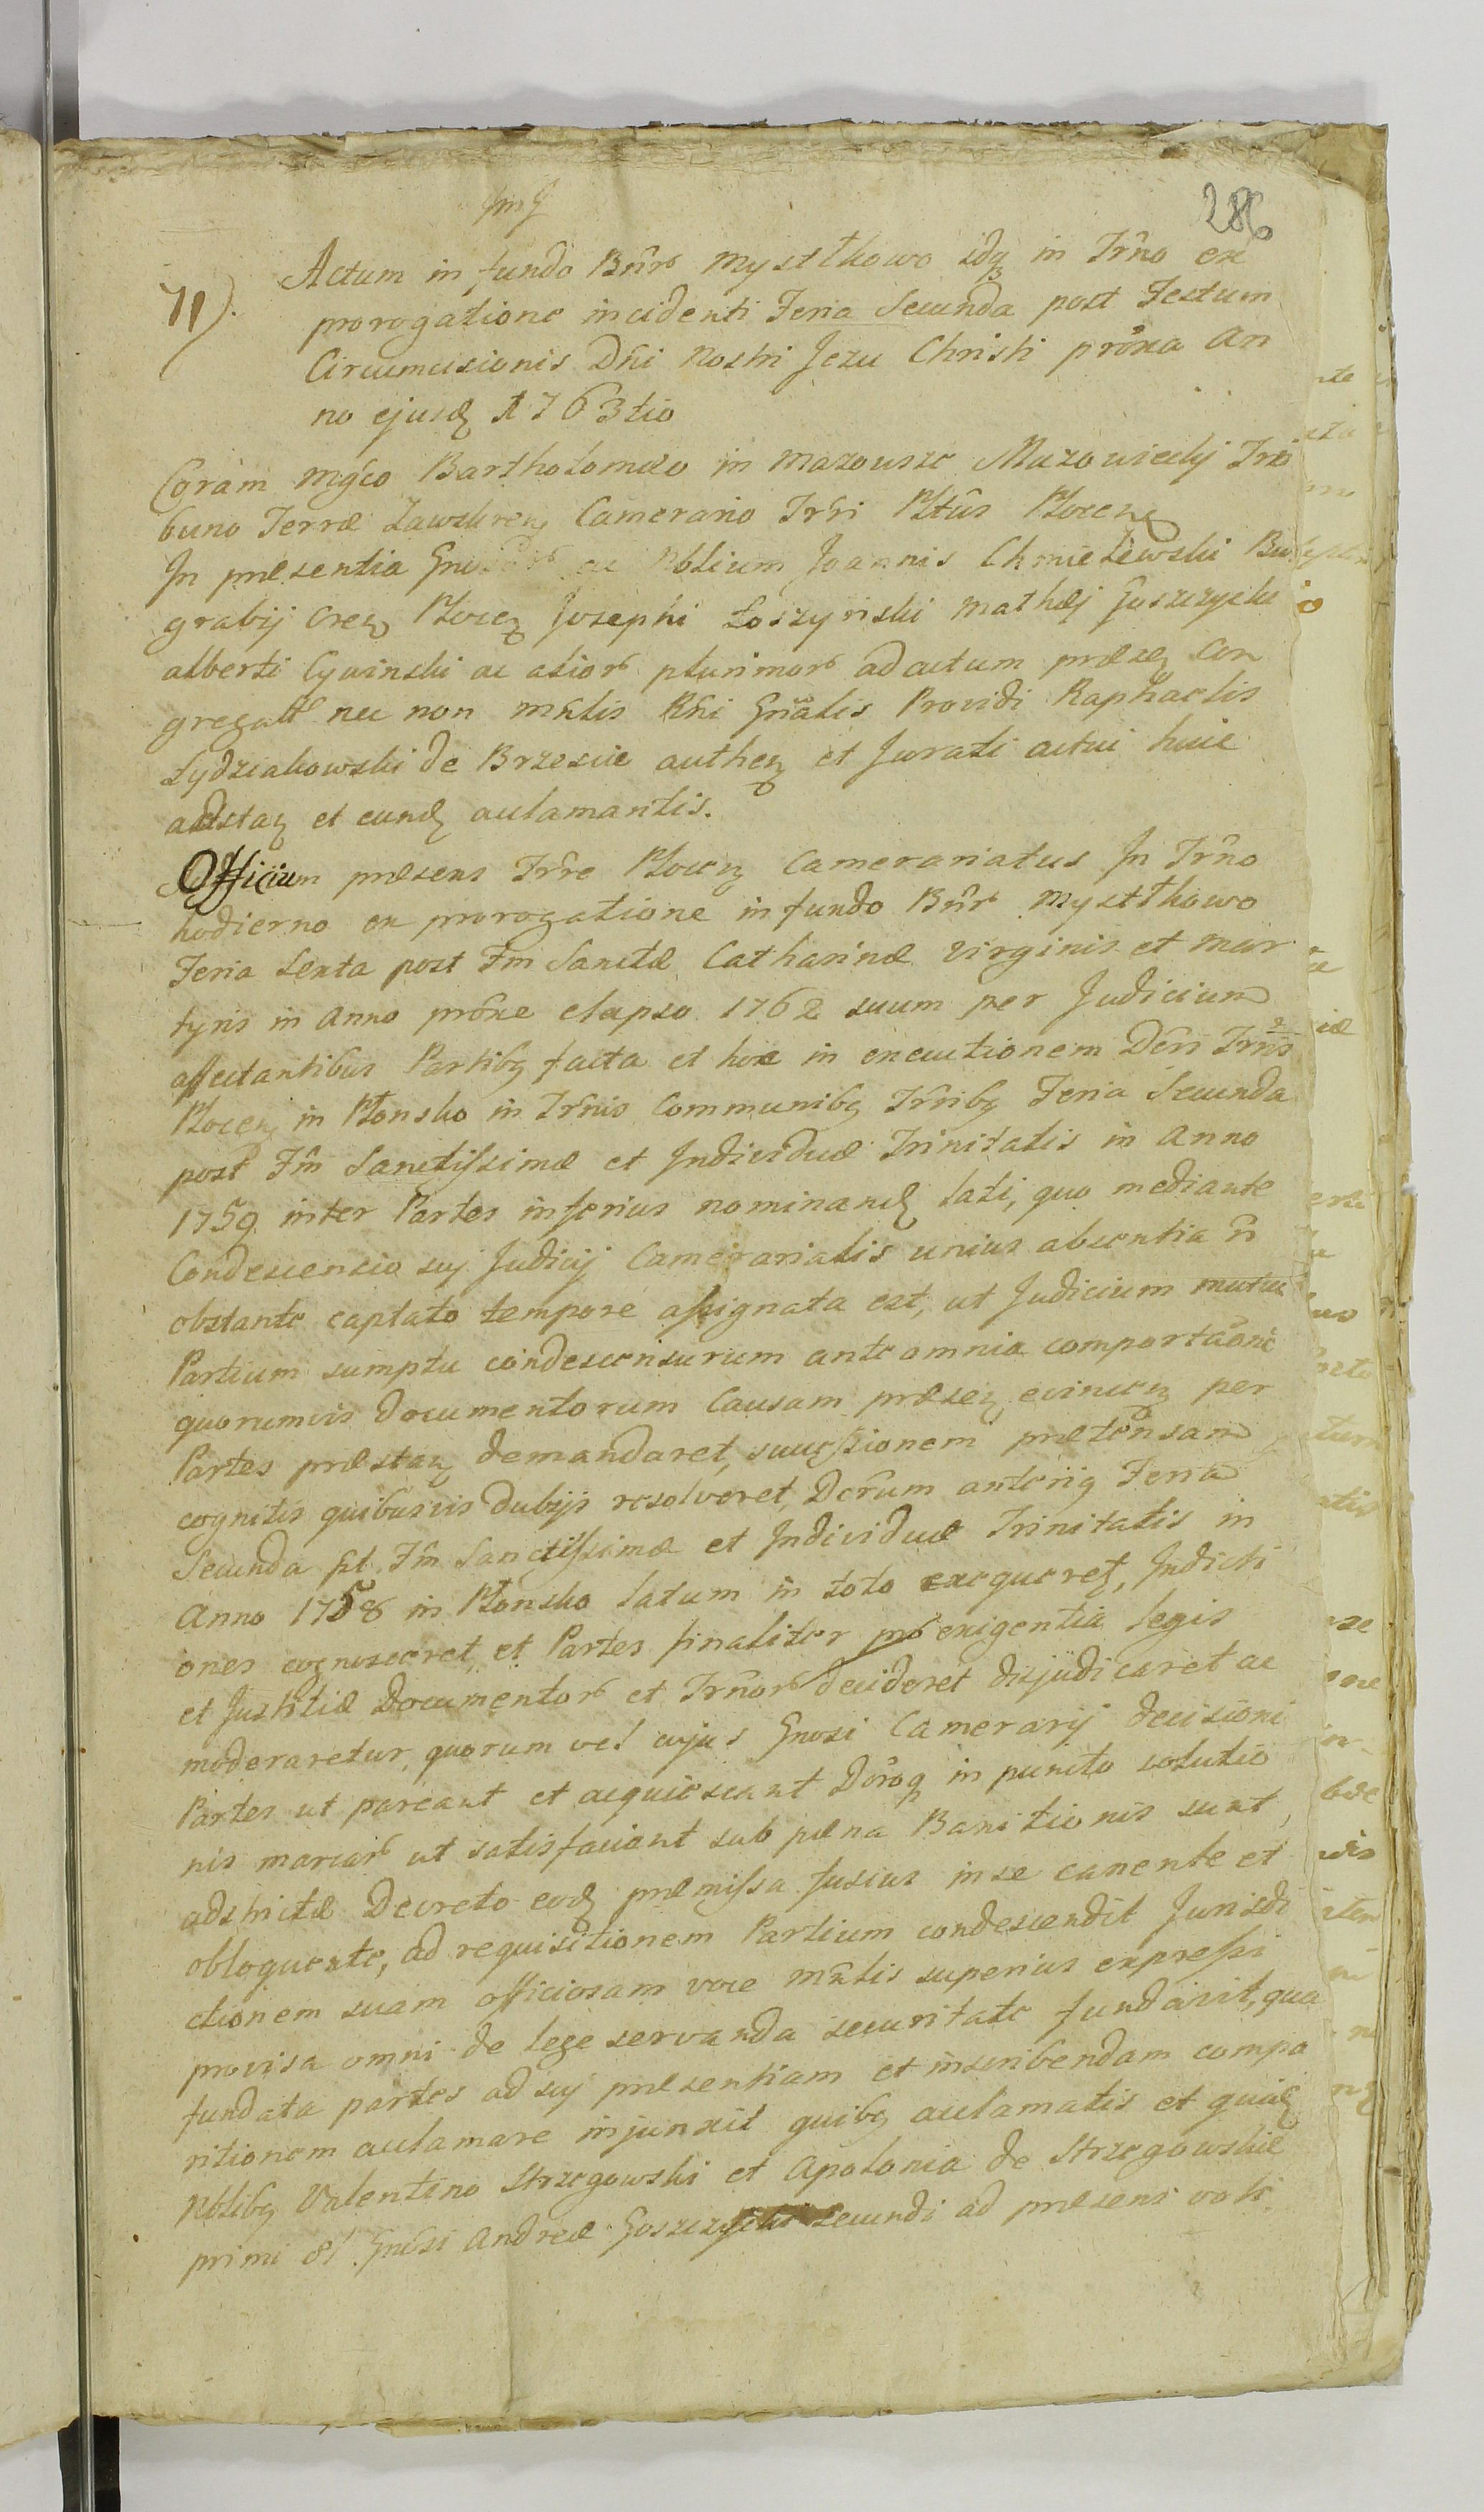 286
71).
Actum in fundo Bnr Mystkowo idq in Trno ex
prorogatione incidenti Feria Secunda post Festum
Circumcisionis Dni Nostri Jezu Christi proxa An
no ejusd 1763tio
Coram Mgco Bartholomæo in Mazowsze Mazowiecky Tri
buno Terræ Zawskren Camerario Trri Pltus Plocen
In præsentia ac Nblium Joannis Chmielewski Bur
grabij Cren Plocen Josephi Łoszyński Mathæj Goszczycki
alberti Cywinski ac alior plurimor ad actum præsen con
gregat nec non mnlis Rni Gnalis Providi Raphaelis
Łydziakowski de Brzescie authen et Jurati actui huic
adstan et eund aclamantis.
Officium præsens Trre Plocen Camerariatus In Trno
hodierno ex prorogatione in fundo Bnr Mystkowo
Feria Sexta post Fm Sanctæ Catharinæ Virginis et Mar
tyris in Anno proxe elapso 1762 suum per Judicium
affectantibus Partibq facta et hoc in executionem Dcri Trris
Plocen in Płonsko in Trnis Communibq Trribq Feria Secunda
post Fm Sanctissimæ et Individuæ Trinitatis in Anno
1759 inter Partes inferius nominand lati, quo mediante
Condescensio sui Judicij Camerarialis unius absentia n
obstante captato tempore assignata est, ut Judicium mutuo
Partium sumptu condescensurum ante omnia comportaone
quorumvis Documentorum Causam præsen evincen per
Partes præstan demandaret, successionem prætensam
cognitis quibusvis Dubijs resolveret, Dcrum anteriq Feria
Secunda pt Fm Sanctissimæ et Individuæ Trinitatis in
Anno 1758 in Płonsko latum in toto exequeret, Indicti
ones cognosceret, et Partes finaliter pro exigentia legis
et Justitiæ Documentor et Trnor decideret disjudicaret ac
moderaretur, quorum vel cujus Gnosi Camerarij decisioni
Partes ut pareant et acquiescant Dcroq in puncto solutio
nis marcar ut satisfaciant sub pæna Banitionis sunt
adstrictæ Decreto eod præmissa fusius in se canente et
obloquente, ad requisitionem Partium condescendit Jurisdi
ctionem suam officiosam voce mnlis superius expressi
provisa omni de lege servanda securitate fundavit, qua
fundata partes ad suj præsentiam et inscribendam compa
ritionem aclamare injunxit quibq aclamatis et quid
Nblibq Valentino Strzegowski et Apolonia de Strzegowskie
primi ol Gnosi Andreæ Goszczycki secundi ad præsens voti